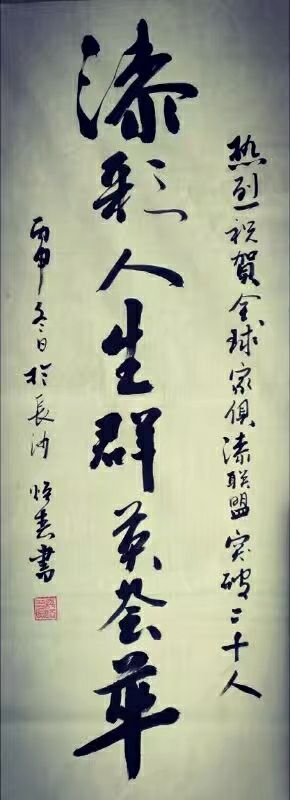 热烈祝贺全球家俱漆联盟突破二千人
漆彩人生群英荟萃
丙申冬日於長沙 書